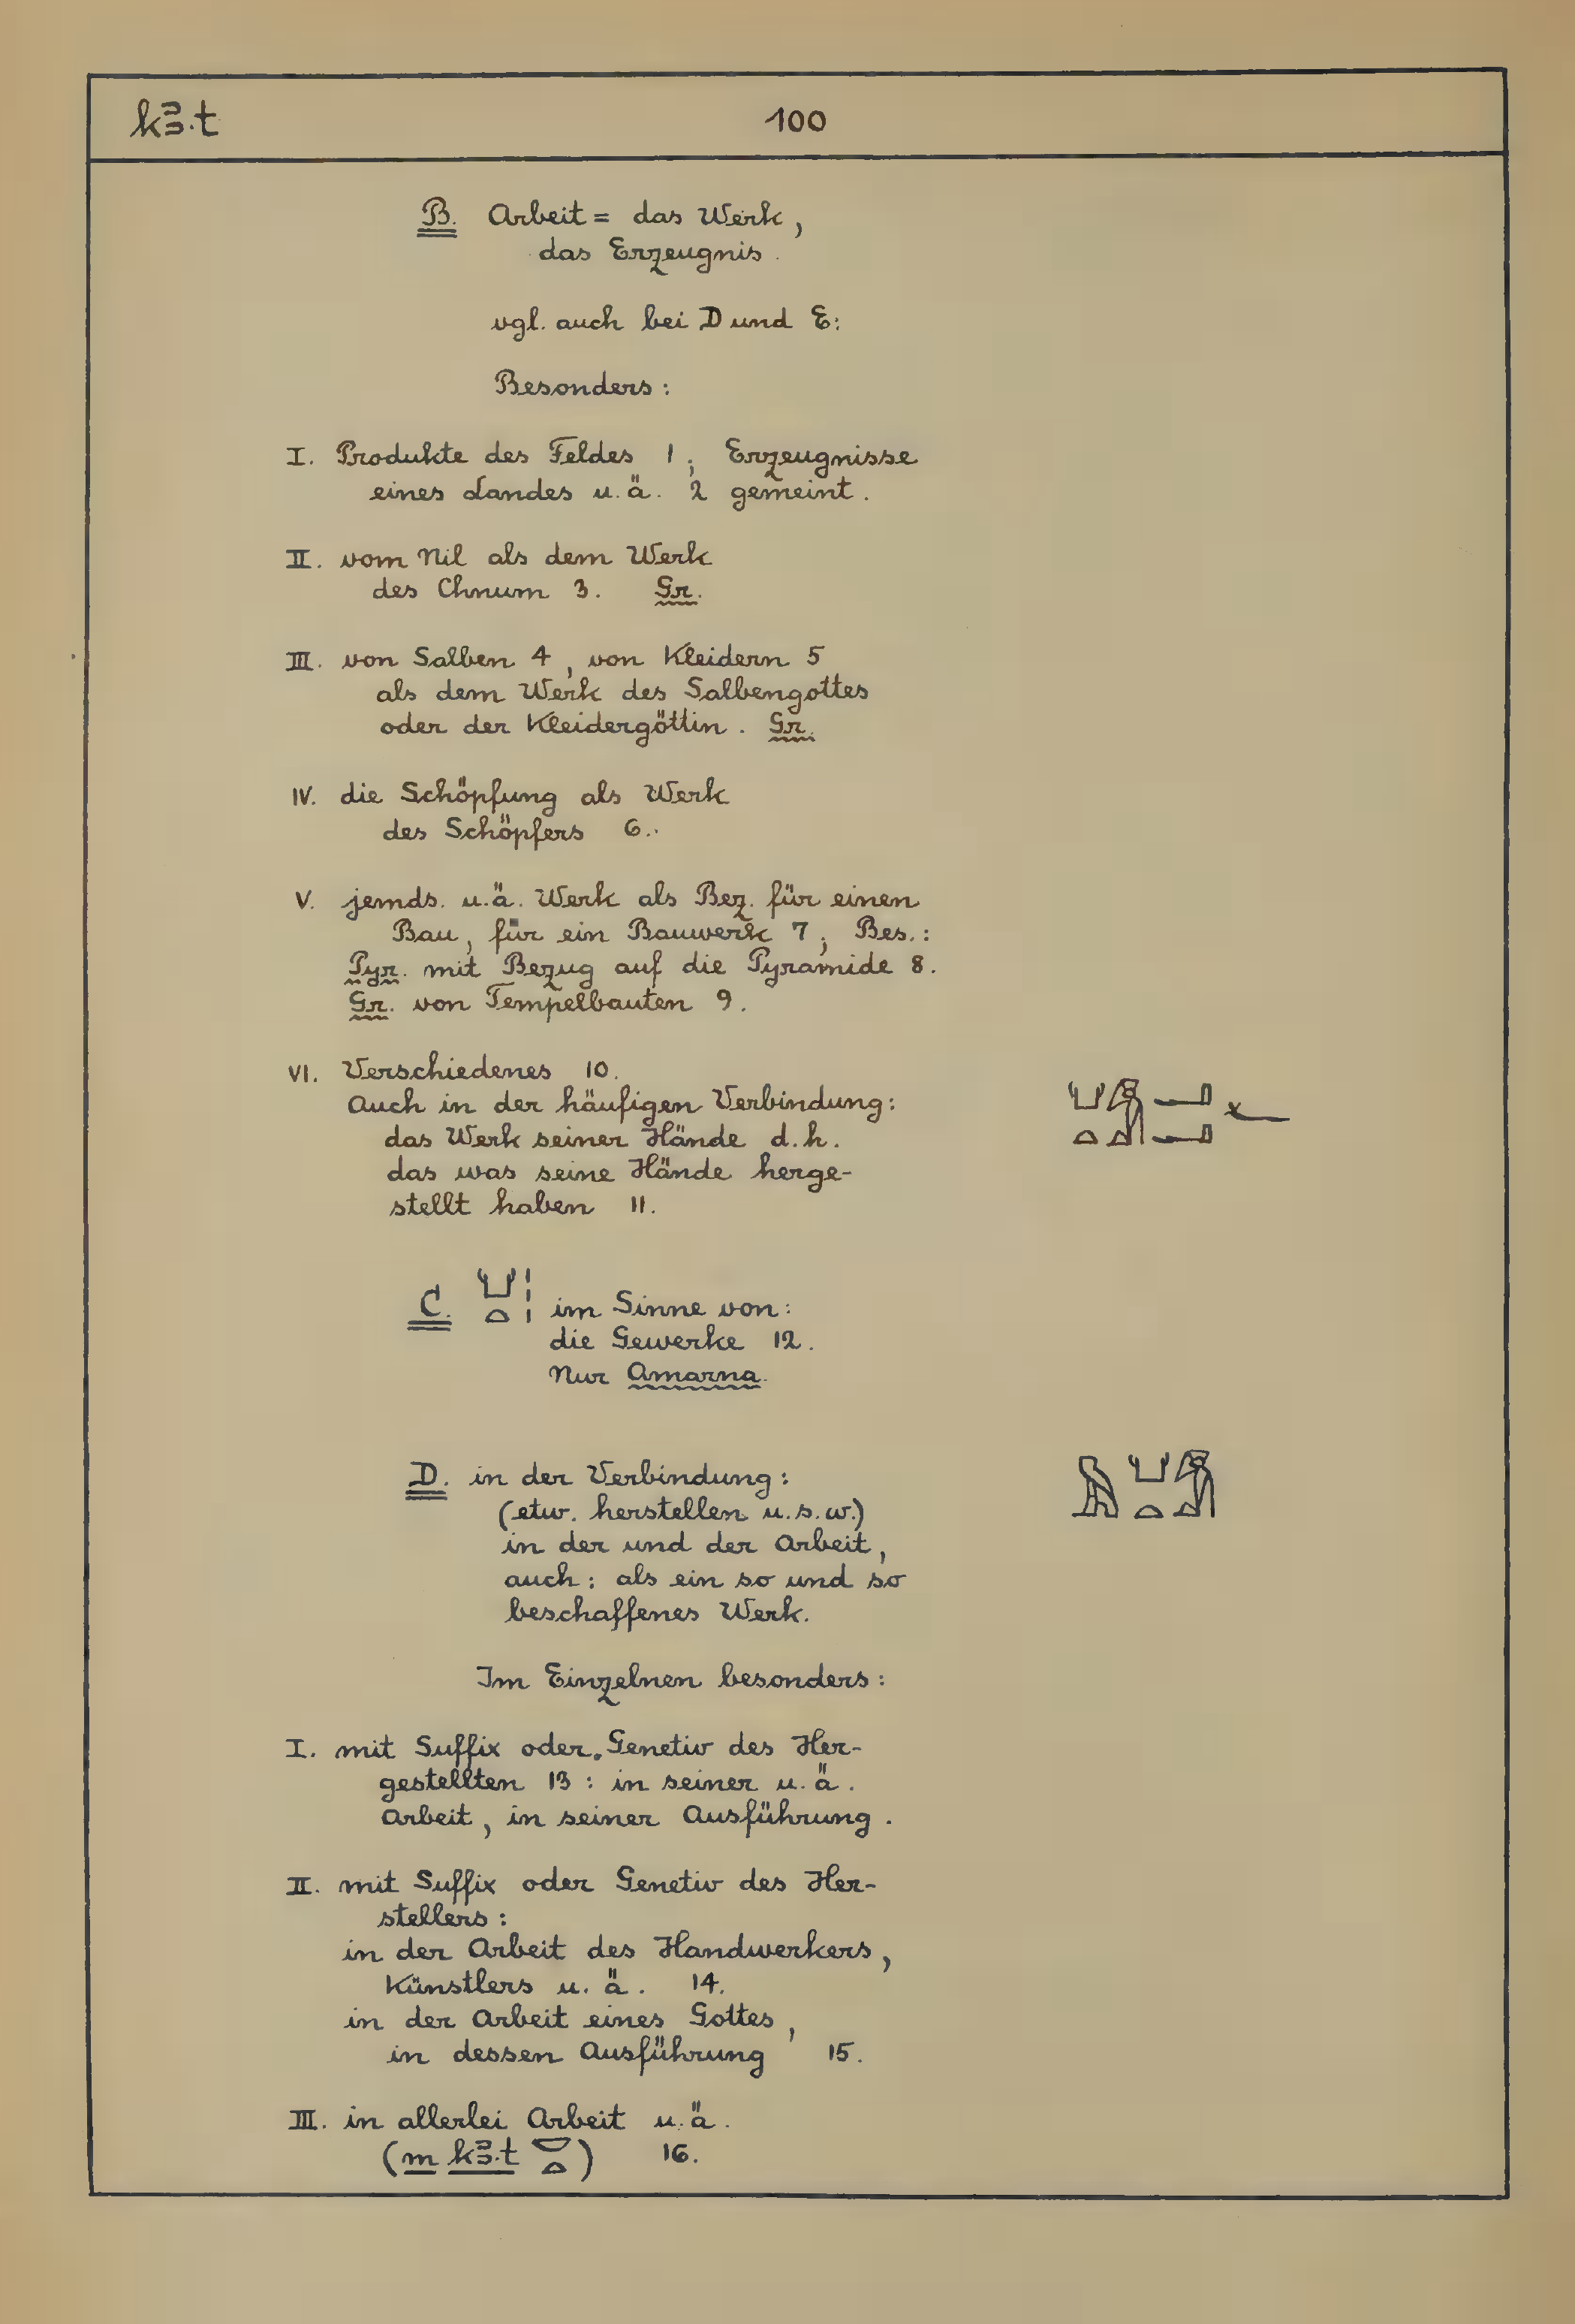 kꜣ.t 100
B. Arbeit = das Werk,
das Erzeugnis.
vgl. auch bei D und E:
Besonders:
I. Produkte des Feldes 1; Erzeugnisse
eines Landes u. ä. 2 gemeint.
II. vom Nil als dem Werk
des Chnum 3. Gr.
III. von Salben 4, von Kleidern 5
als dem Werk des Salbengottes
oder der Kleidergöttin. Gr.
IV. die Schöpfung als Werk
des Schöpfers 6.
V. jemds. u. ä. Werk als Bez. für einen
Bau, für ein Bauwerk 7; Bes.:
Pyr. mit Bezug auf die Pyramide 8.
Gr. von Tempelbauten 9.
VI. Verschiedenes 10.
Auch in der häufigen Verbindung:
das Werk seiner Hände d. h.
das was seine Hände herge-
stellt haben 11.
C. 𓂓𓏏𓏥 im Sinne von:
die Gewerke 12.
Nur Amarna.
D. in der Verbindung:
(etw. herstellen u. s. w.)
in der und der Arbeit,
auch: als ein so und so
beschaffenes Werk.
Im Einzelnen besonders:
I. mit Suffix oder Genetiv des Her-
gestellten 13: in seiner u. ä.
Arbeit, in seiner Ausführung.
II. mit Suffix oder Genetiv des Her-
stellers:
in der Arbeit des Handwerkers,
Künstlers u. ä. 14.
in der Arbeit eines Gottes,
in dessen Ausführung 15.
III. in allerlei Arbeit u. ä.
(m kꜣ.t 𓎟𓏏) 16.